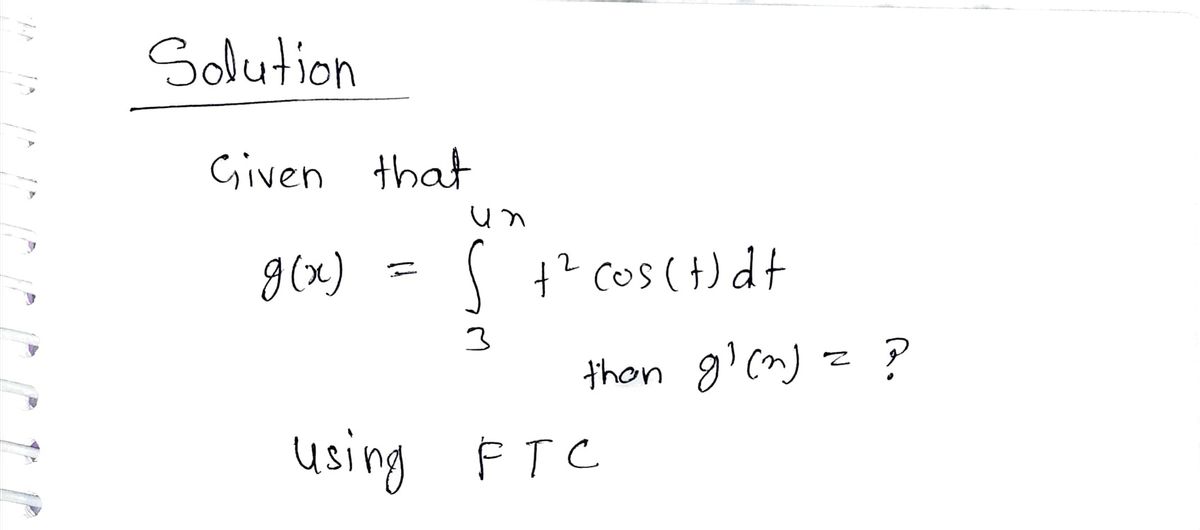 Solution
Given that
g(x) = ∫₃⁴ˣ t² cos(t) dt
then g'(x) = ?
using FTC